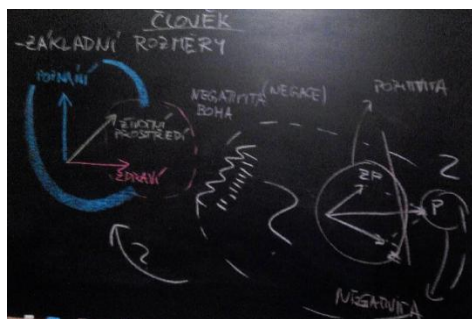 ČLOVĚK
-ZÁKLADNÍ ROZMĚRY
POZNÁNÍ
ŽIVOTNÍ
PROSTŘEDÍ
ZDRAVÍ
NEGATIVITA (NEGACE)
BOHA
POZITIVITA
ŽP
P
NEGATIVITA